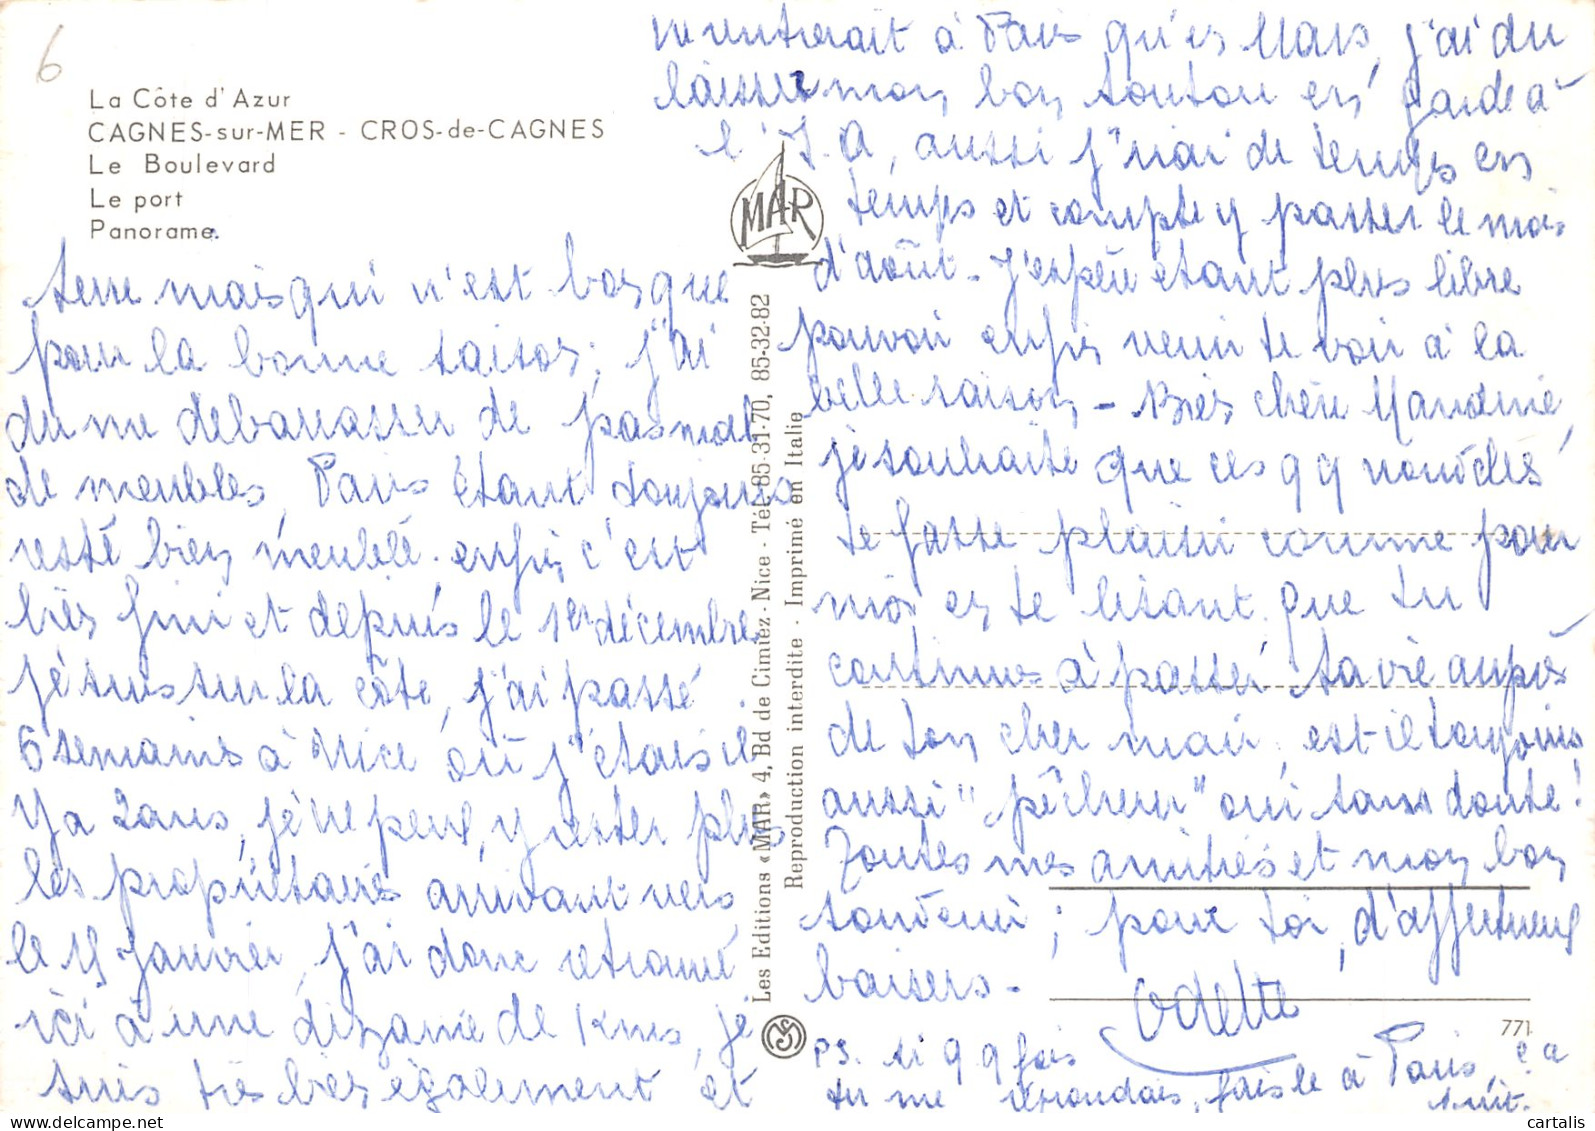 6
La Côte d'Azur
CAGNES-sur-MER - CROS-de-CAGNES
Le Boulevard
Le port
Panorama.
terre mais qui n'est bon que
pour la bonne saison; j'ai
du me debarrasser de pas mal
de meubles, Paris étant toujours
resté bien meublé. enfin c'est
bien fini et depuis le 1er décembre
je suis sur la côte, j'ai passé
6 semaines à Nice où j'étais il
y a 2 ans, je ne peux y rester plus
les propriétaires arrivant vers
le 15 Janvier, j'ai donc retrouvé
ici à une dizaine de Kms, je
suis très bien également et
ne rentrerait à Paris qu'en Mars, j'ai du
laisser mon bon toutou en garde à
l' J.A, aussi j'irai de temps en
temps et compte y passer le mois
d'août - J'espère étant plus libre
pouvoir enfin venir te voir à la
belle saison - Bien chère
je souhaite que ces qq
te fasse plaisir comme pour
moi en te lisant. que tu
continues à passer ta vie auprès
de ton cher mari, est-il toujours
aussi "pêcheur" oui sans doute!
Toutes mes amitiés et mon bon
souvenir; pour toi, d'affectueux
baisers -
Odette
PS. si qq fois
tu me répondais, fais le à Paris, ça
suit.
MAR
Les Editions «MAR» 4, Bd de Cimiez - Nice - Tél. 85-31-70, 85-32-82
Reproduction interdite - Imprimé en Italie
771
www.delcampe.net
cartalis